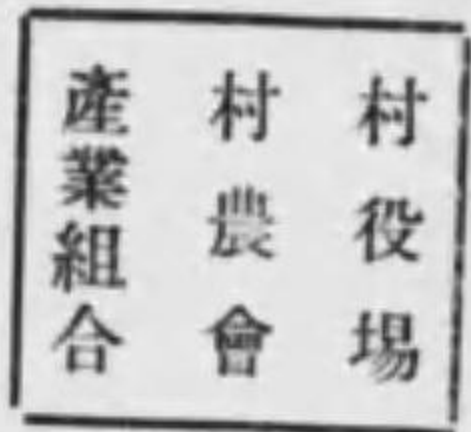 村役場
村農會
產業組合